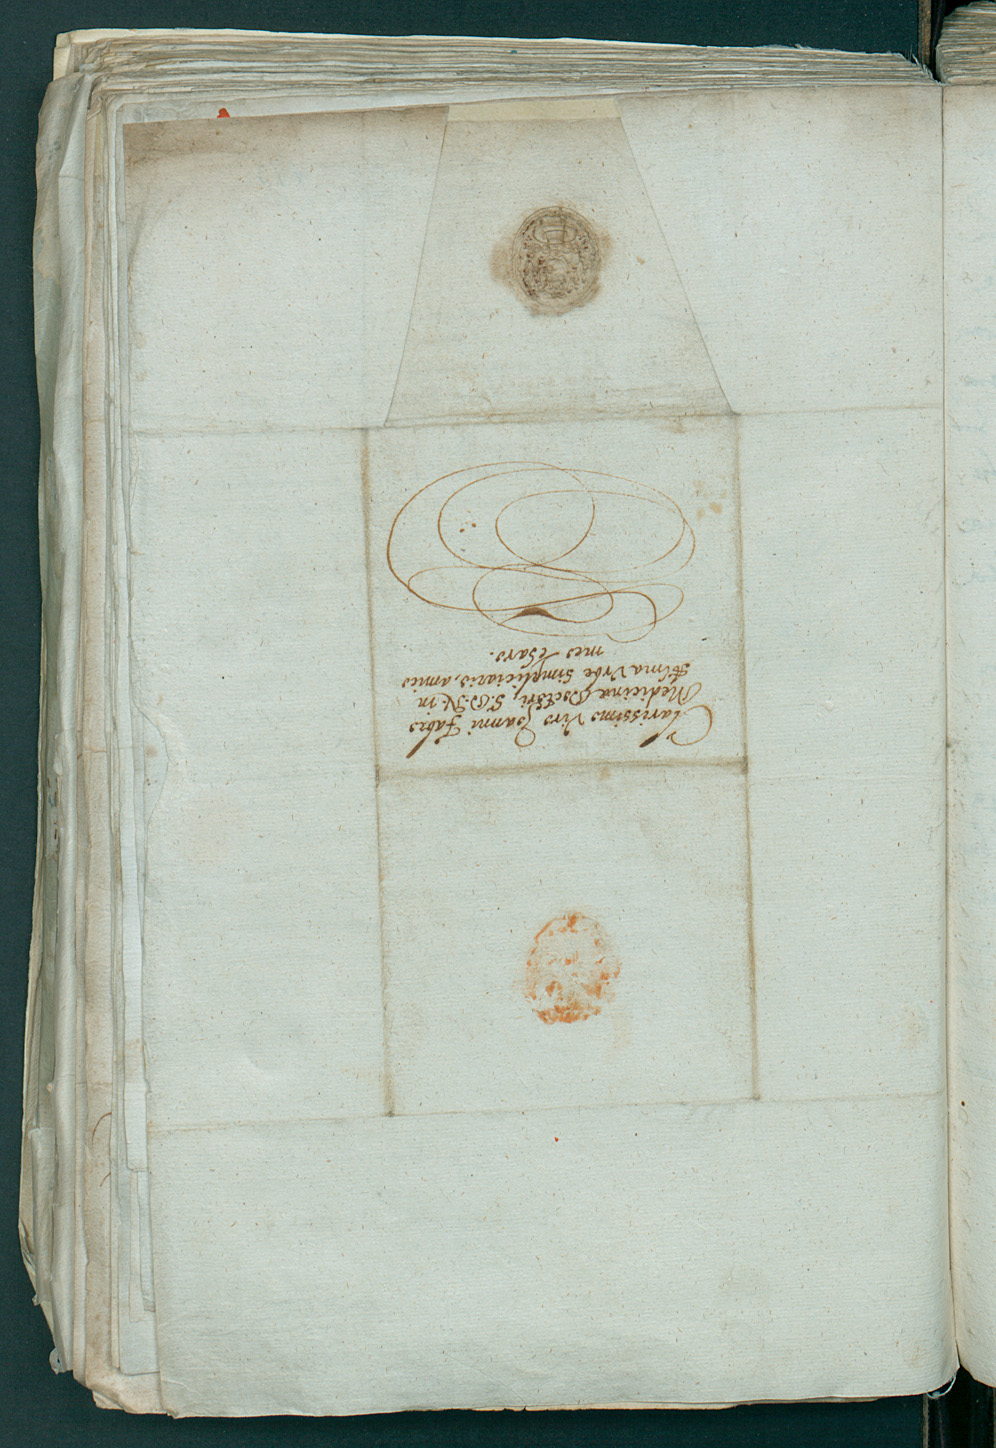 Clarissimo Viro Joanni Fabro
Medicinæ Doctori, S.D.N. in
Alma Urbe Simpliciario, amico
meo charo.